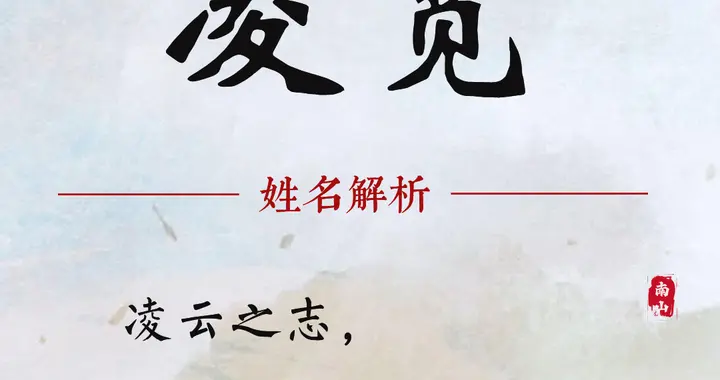 凌觅
姓名解析
南山
凌云之志，